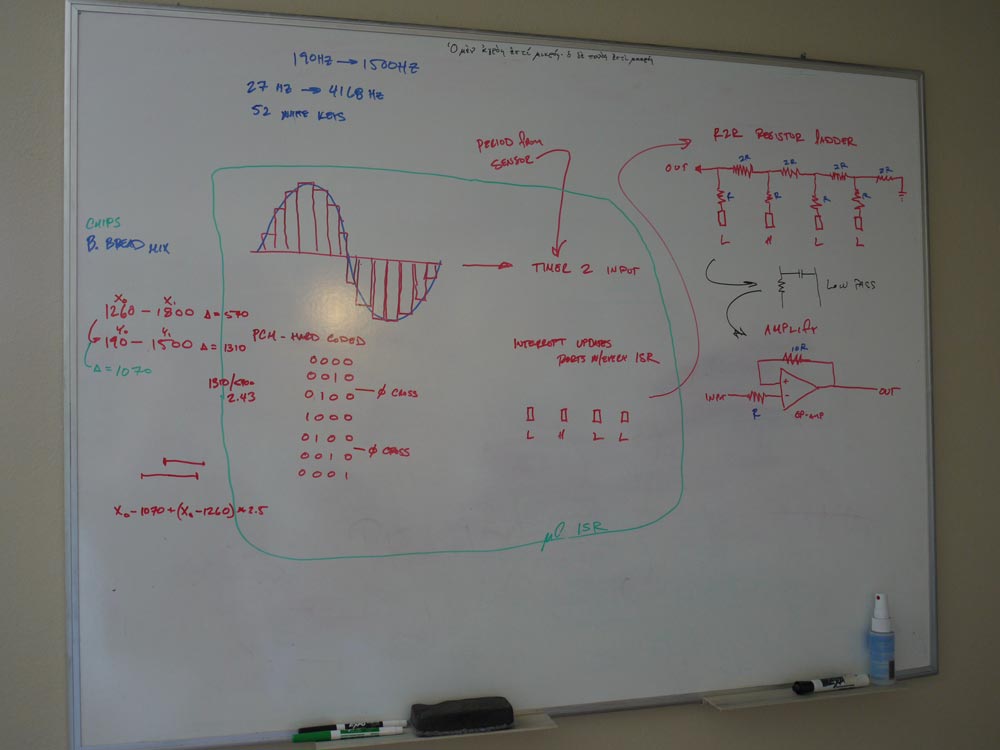 190HZ → 1500HZ
27 HZ → 4168 HZ
52 WHITE KEYS
PERIOD from
SENSOR
R2R RESISTOR LADDER
OUT
2R 2R 2R 2R
R R R R
L H L L
CHIPS
B. BREAD MIX
TIMER 2 INPUT
LOW PASS
X₀ X₁
1260 - 1800 Δ = 570
Y₀ Y₁
190 - 1500 Δ = 1310
Δ = 1070
2.43
PCM - HARD CODED
0000
0010
0100 Ø CROSS
1000
0100
0010 Ø CROSS
0001
INTERRUPT UPDATES
PORTS W/EVERY ISR
L H L L
AMPLIFY
10R
+
-
INPUT
R
OP-AMP
OUT
X₀ - 1070 + (X₀ - 1260) * 2.5
µC ISR